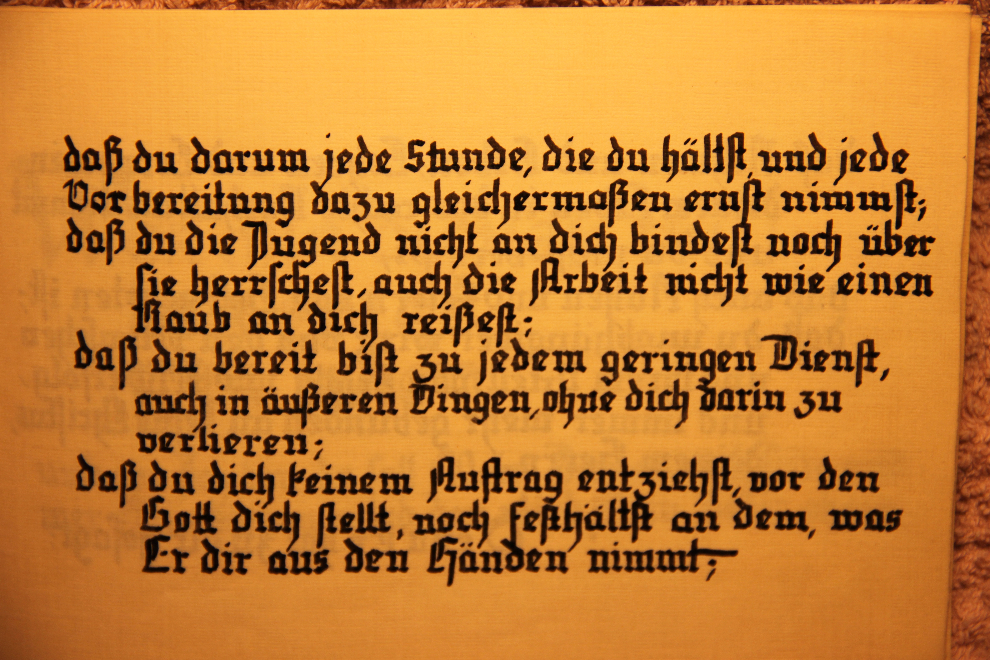 daß du darum jede Stunde, die du hältst, und jede
Vorbereitung dazu gleichermaßen ernst nimmst;
daß du die Jugend nicht an dich bindest noch über
sie herrschest, auch die Arbeit nicht wie einen
Raub an dich reißest;
daß du bereit bist zu jedem geringen Dienst,
auch in äußeren Dingen, ohne dich darin zu
verlieren;
daß du dich keinem Auftrag entziehst, vor den
Gott dich stellt, noch festhältst an dem, was
Er dir aus den Händen nimmt;